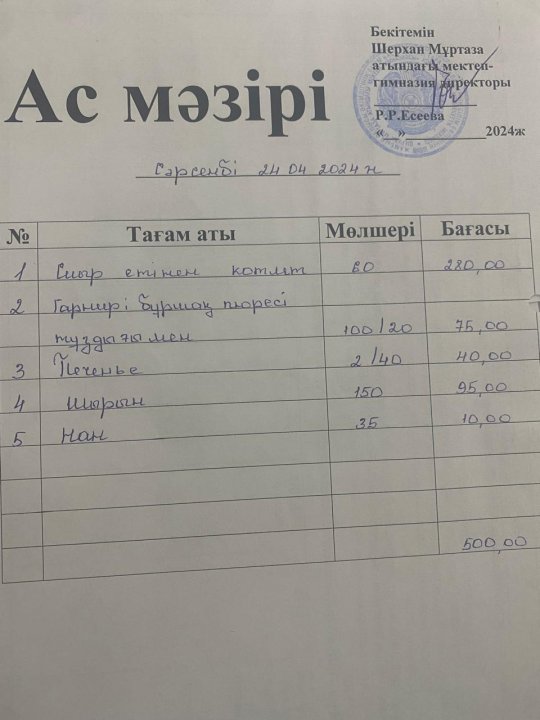 Бекітемін
Шерхан Мұртаза
атындағы мектеп-
гимназия директоры
Р.Р.Есеева
«__»____________2024ж
Ас мәзірі
Сәрсенбі 24 04 2024 ж
№ Тағам аты Мөлшері Бағасы
1 Сиыр етінен котлет 60 280,00
2 Гарнир: бұршақ пюресі
тұздығымен 100/20 75,00
3 Печенье 2/40 40,00
4 Шырын 150 95,00
5 Нан 35 10,00
500,00